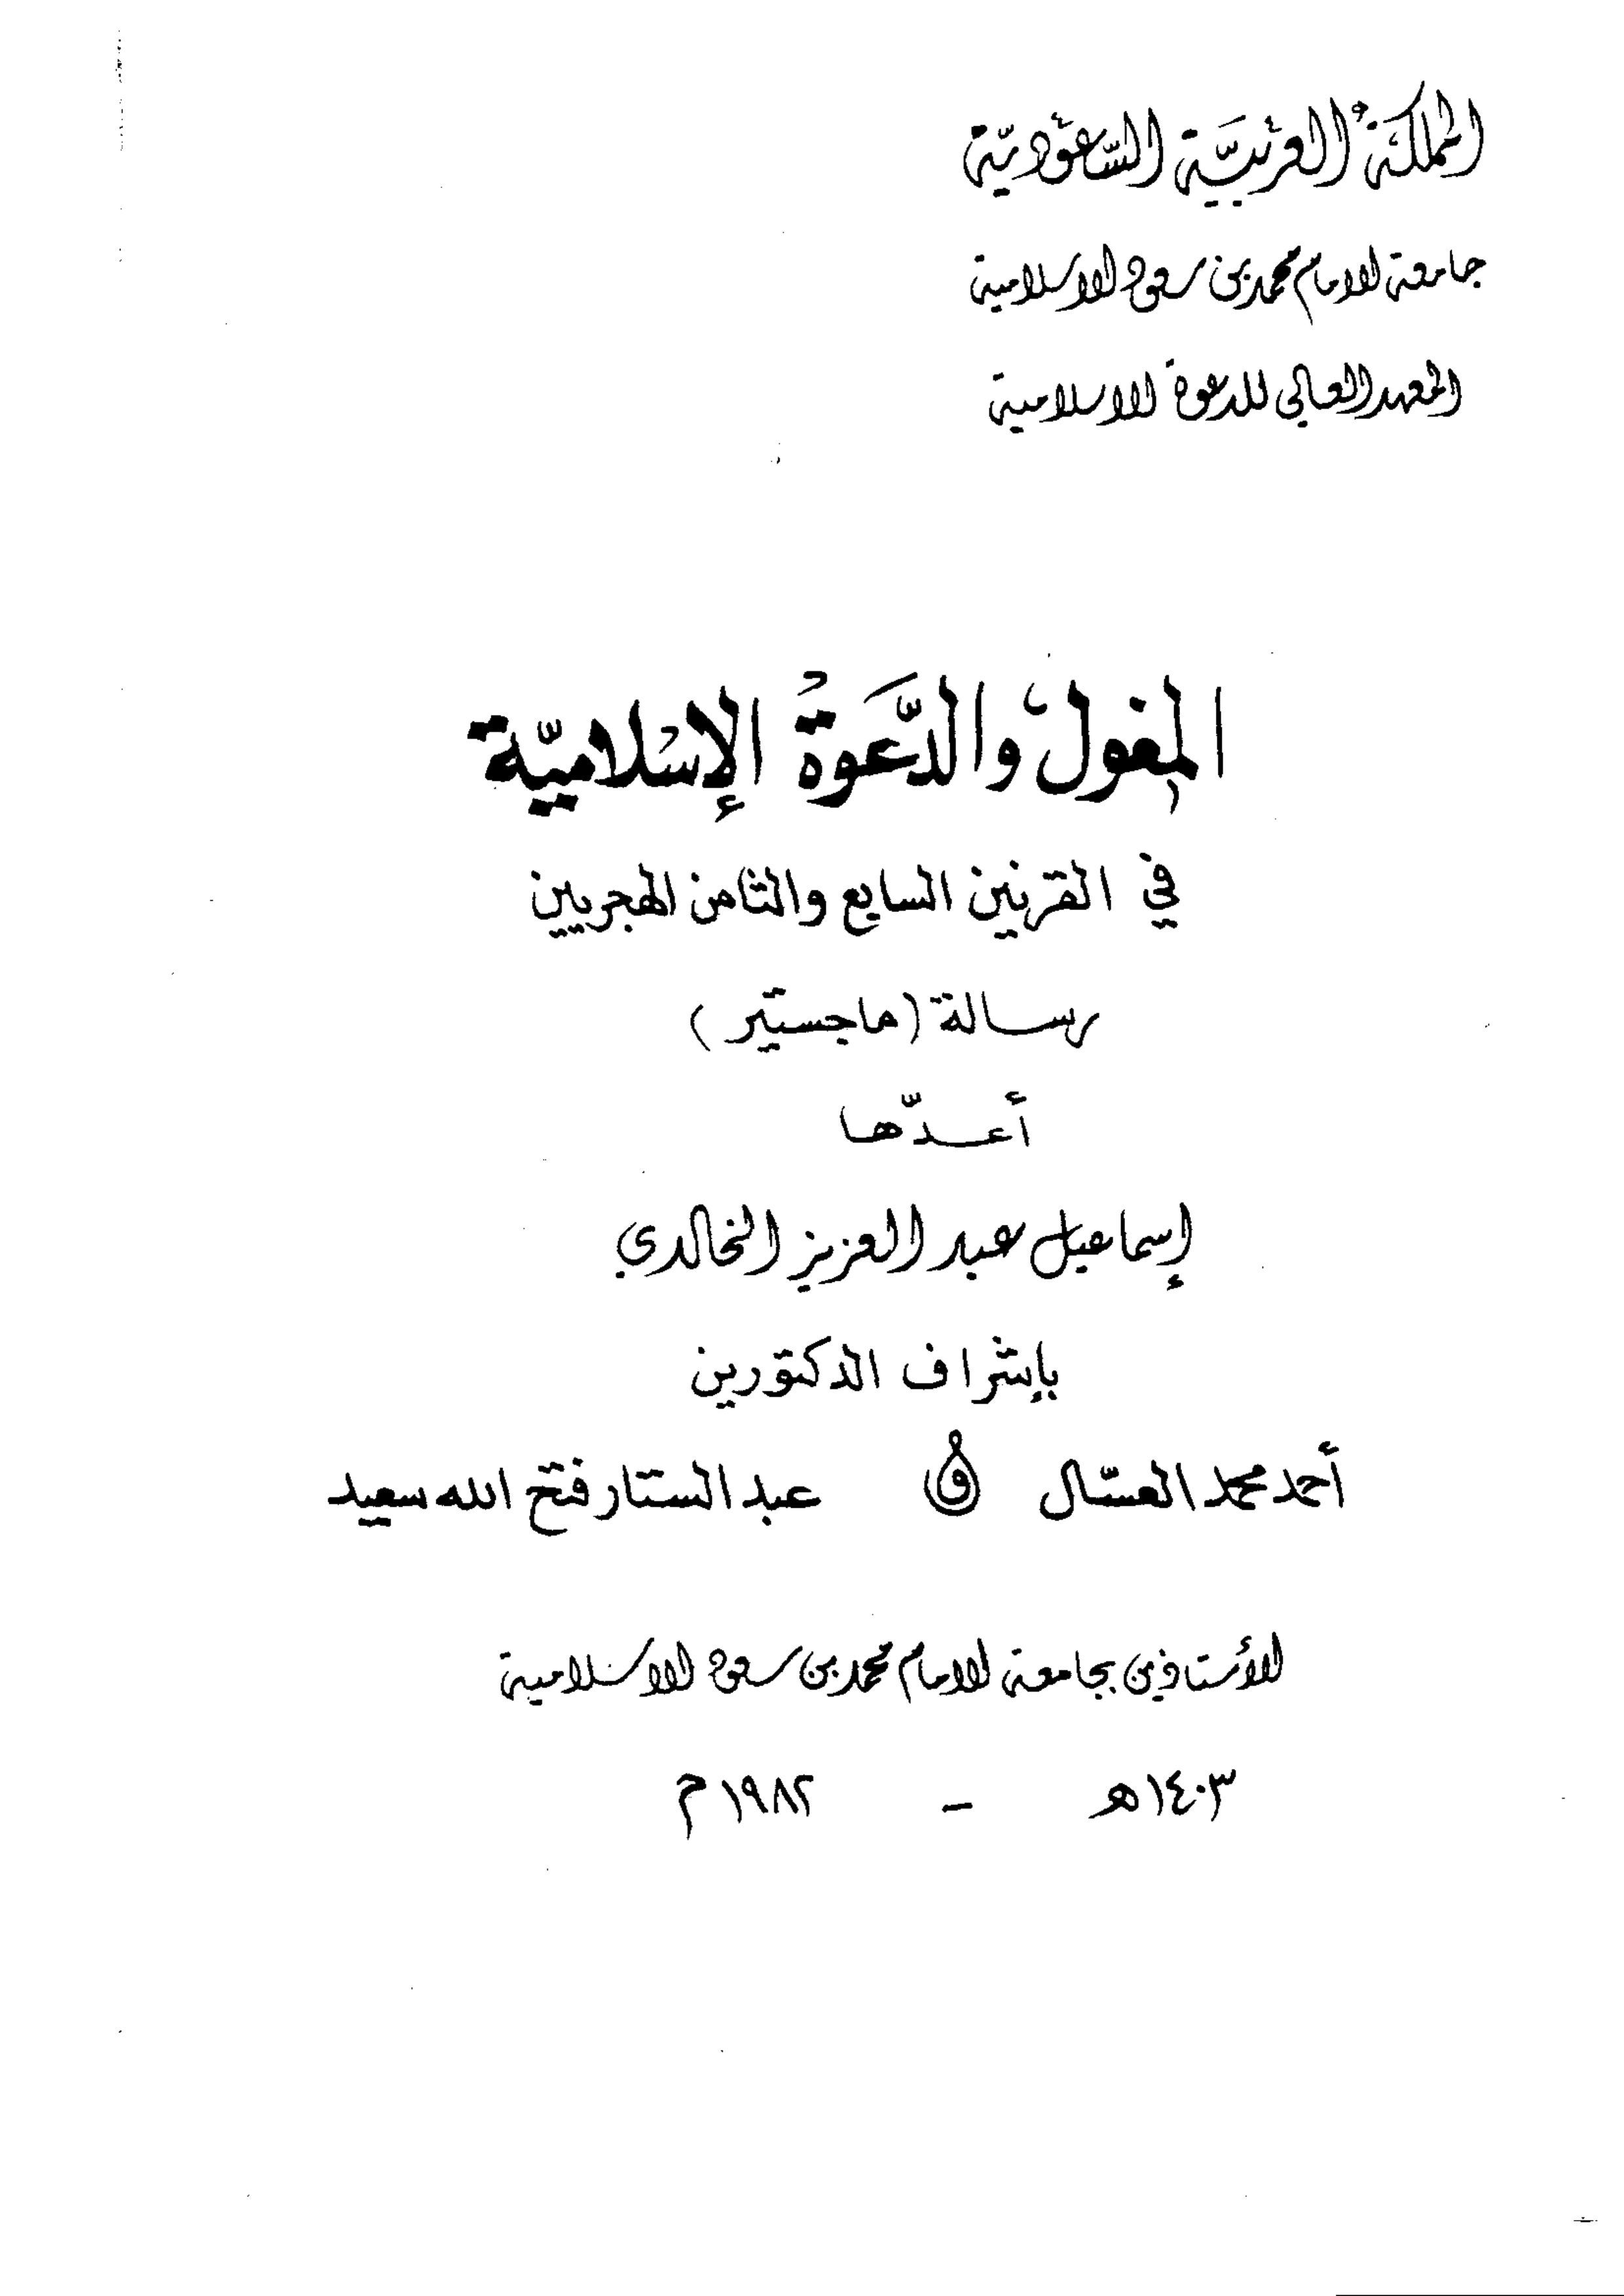 المملكة العربيّة السّعوديّة
جامعة الامام محمد بن سعود الاسلامية
المعهد العالي للدعوة الاسلامية
المغول والدَّعوة الإسلاميّة
في القرنين السابع والثامن الهجريين
رسالة (ماجستير)
أعدّها
إسماعيل عبد العزيز الخالدي
بإشراف الدكتورين
أحمد محمد العسّال و عبد الستار فتح الله سعيد
الأستاذين بجامعة الامام محمد بن سعود الاسلامية
١٤٠٣هـ - ١٩٨٢م